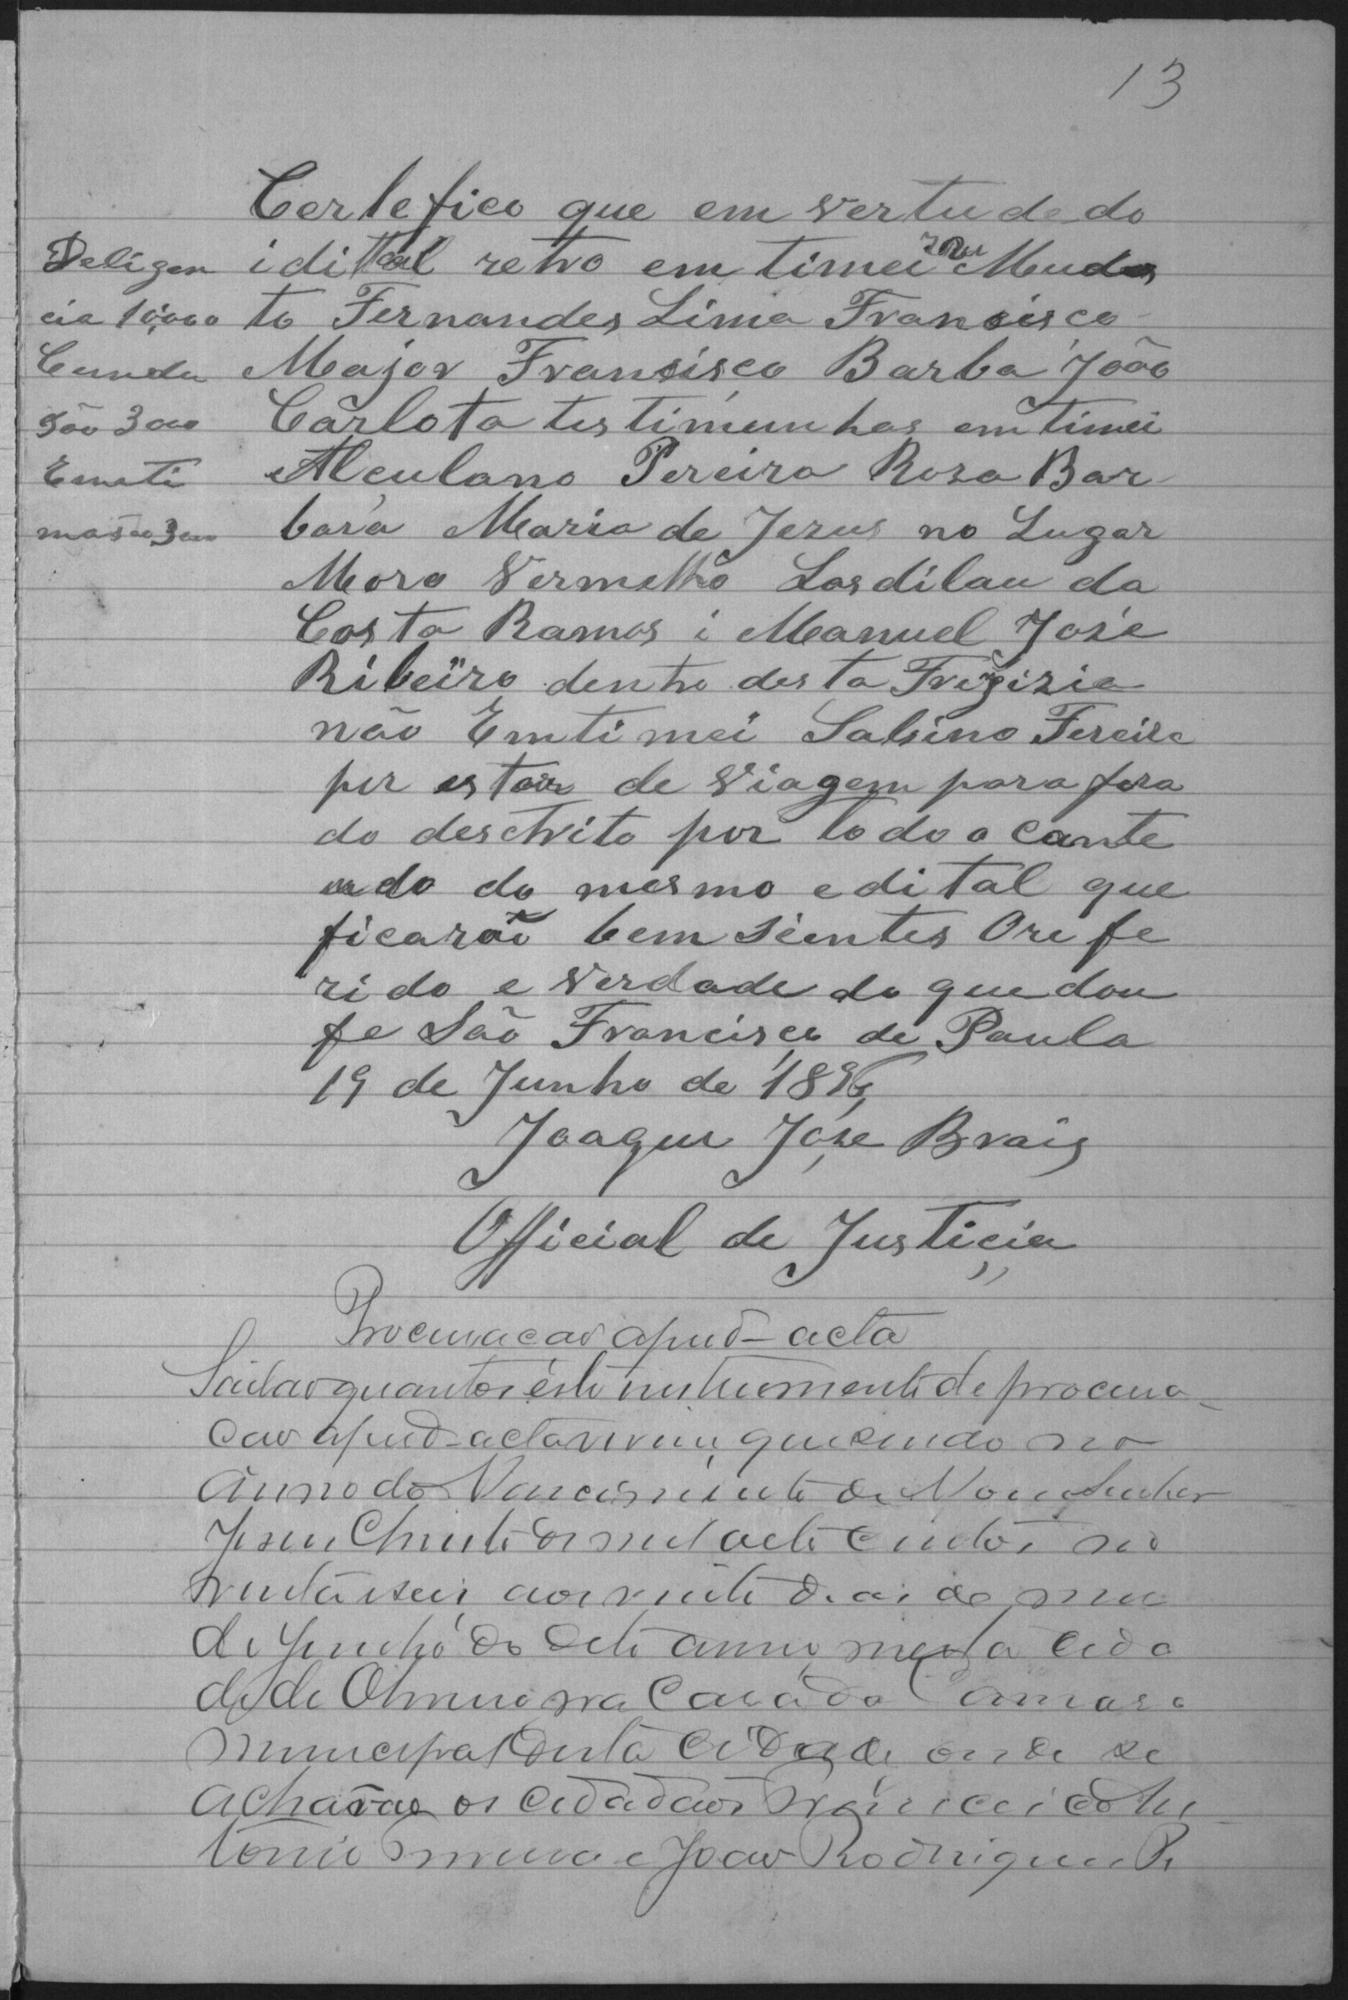 13
Certefico que em vertude do
idittal retro em timei Mudes
to Fernandes Lima Francisco
Major Fransisco Barba João
Carlota testimunhas em timei
Alculano Pereira Rosa Bar
bara Maria de Jezus no Lugar
Moro Vermelho Lasdilau da
Costa Ramos i Manuel José
Ribeiro dentro desta Fregizia
não Emtimei Sabino Fereira
por estar de Viagem para fora
do destrito por todo o conte
udo do mesmo edital que
ficarão bem sientes O refe
rido e verdade do que dou
fe São Francisco de Paula
19 de Junho de 1896
Joaqui José Brais
Official de Justicia
Deligen
cia 10,000
Cundu
são 3000
Emti
masão 3000
Procuracao apud-acta
Saibão quantos este instrumento de procura
cao apud-acta virem, que sendo no
Anno do Nascimento de Nosso Senhor
Jesus Christo de mil oito centos no
venta e seis aos vinte dias do mes
de Junho do dito anno, nesta cida
de de Oliveira na Casa da Camara
Municipal desta Cidade onde se
acharão os cidadãos
tonio e João Rodrigues Pe